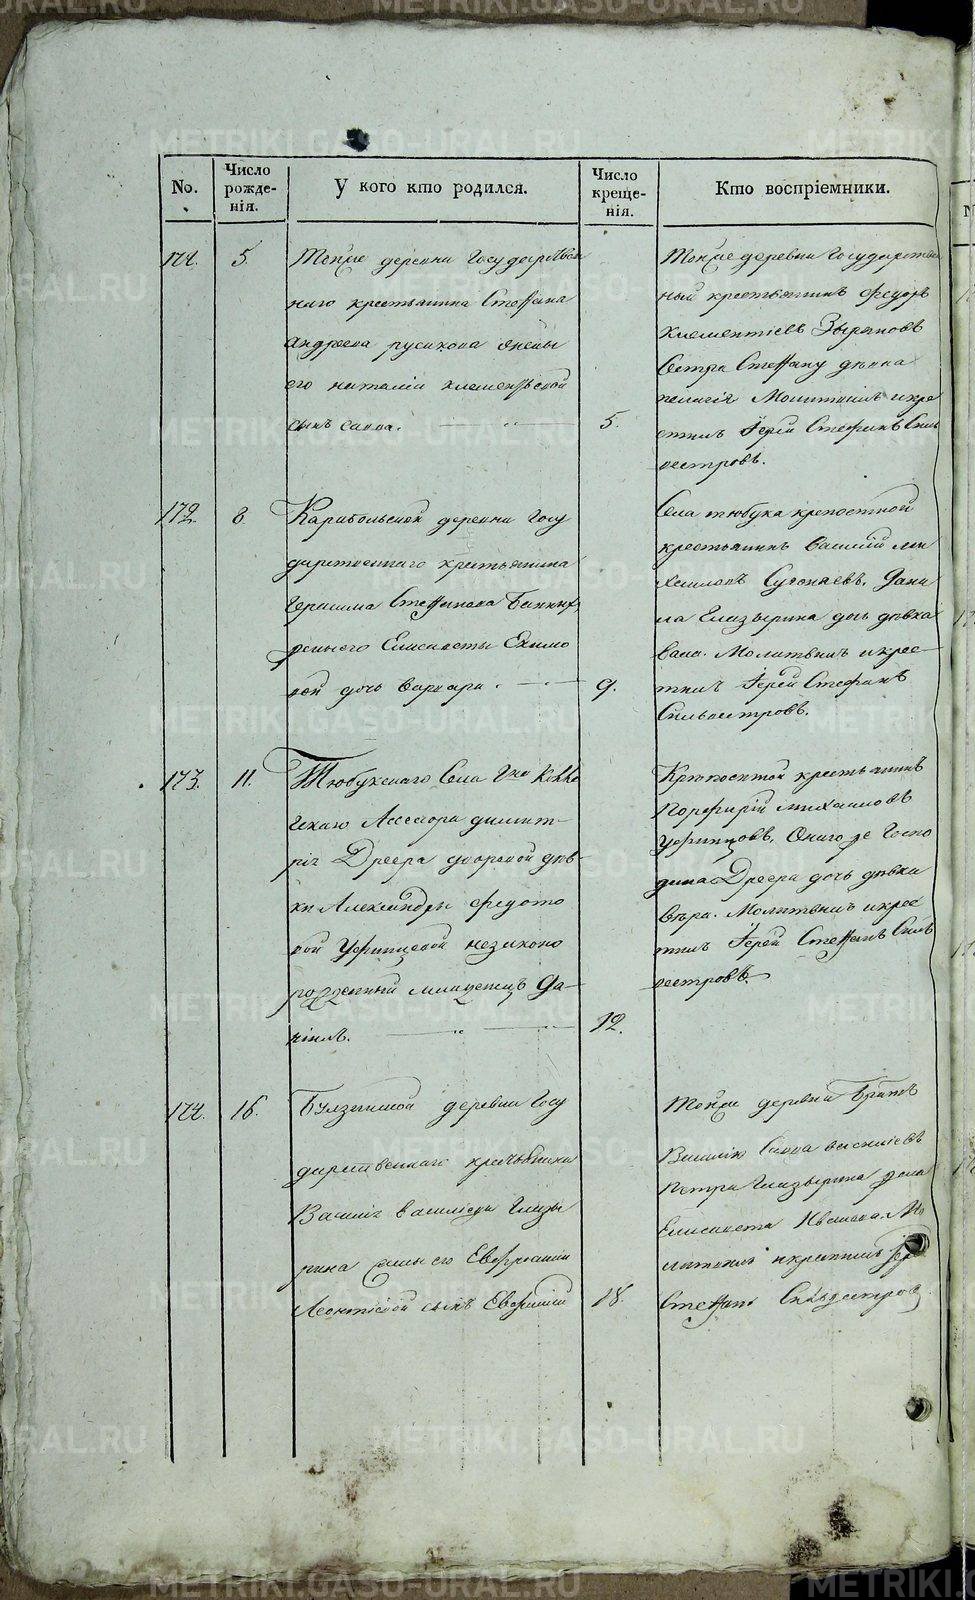 METRIKI.GASO-URAL.RU
No.
Число рожде-нія.
У кого кто родился.
Число креще-нія.
Кто воспріемники.
171.
5.
Тойже деревни Государствен
наго крестьянина Стефана
Андреева русинова жены
его наталіи клементьевой
сынъ савва.
5.
Тойже деревни Государствен
ный крестьянинъ Федоръ
Клементіевъ Зыряновъ
Петра Стефану девка
пелагія Молитвилъ и кре
стилъ Іерей Стефанъ Силь
вестровъ.
172.
8.
Карабольской деревни Госу
дарственнаго крестьянина
Герасима Стефанова
жены его Елисаветы Екимо
вой дочь варвара.
9.
Села тюбука крепостной
крестьянинъ Василій ми
хаиловъ Сугоняевъ, Дани
ла Глазырина дочь девка
Молитвилъ и крес
тилъ Іерей Стефанъ
Сильвестровъ.
173.
11.
Тюбукскаго Села
Ассесора димит
рія Дреера дворовой дѣв
ки Александры Федото
вой Уфимцевой незаконо
рожденный младенецъ Да
ніилъ.
12.
Крѣпостной крестьянинъ
Порфирій михаиловъ
Уфимцовъ, Онаго же Госпо
дина Дреера дочь дѣвка
вѣра. Молитвилъ и крес
тилъ Іерей Стефанъ Силь
вестровъ.
174.
16.
Булзинской деревни Госу
дарственнаго крестьянина
Василія василіева Глазы
рина жены его Евфросиніи
Леонтіевой сынъ Евфимій
18.
Тойже деревни Братъ
Василію Савва василіевъ
Петра Глазырина жена
Елисавета Иванова. Мо
литвилъ и крестилъ Іерей
Стефанъ Сильвестровъ